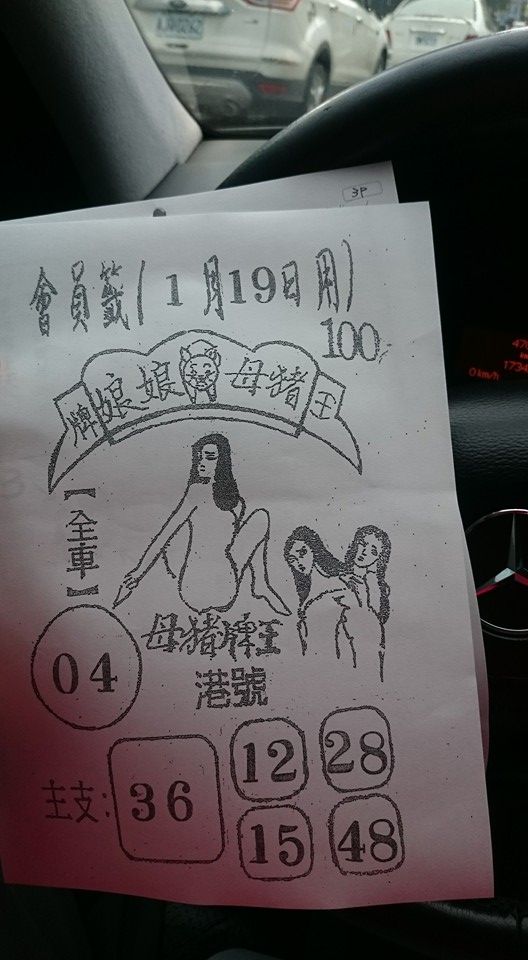 3P
會員籤(1月19日用)
100
牌娘娘 母豬王
【全車】
04
母豬牌王
港號
主支: 36
12 28
15 48
0 km/h